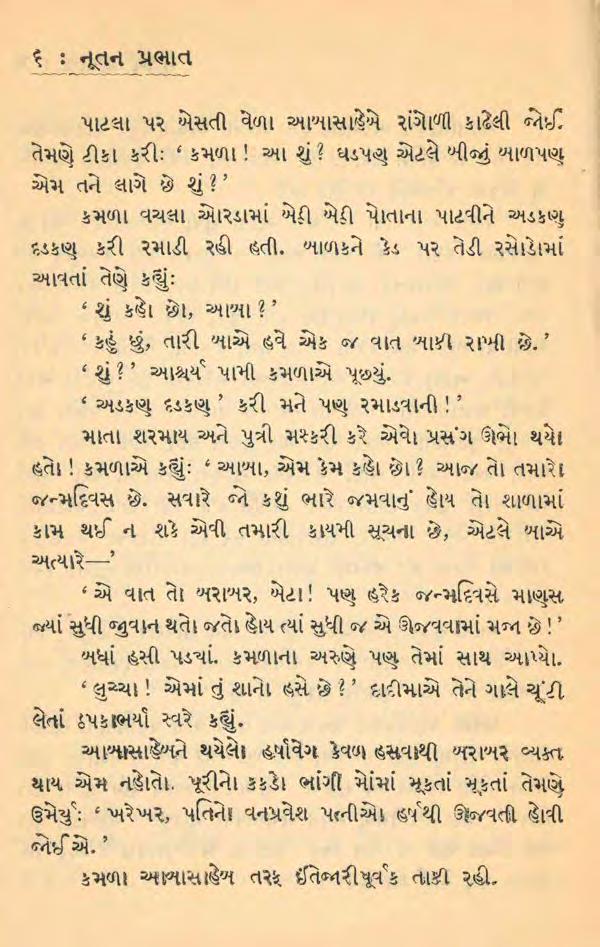 ૬ : નૂતન પ્રભાત
પાટલા પર બેસતી વેળા આબાસાહેબે રાંગોળી કાઢેલી જોઈ.
તેમણે ટીકા કરીઃ ‘ કમળા ! આ શું ? ઘડપણ એટલે બીજું બાળપણ
એમ તને લાગે છે શું ? ’
કમળા વચલા ઓરડામાં બેઠી બેઠી પોતાના પાટવીને અડકણ
દડકણ કરી રમાડી રહી હતી. બાળકને કેડ પર તેડી રસોડામાં
આવતાં તેણે કહ્યુંઃ
‘ શું કહો છો, આબા ? ’
‘ કહું છું, તારી બાએ હવે એક જ વાત બાકી રાખી છે. ’
‘ શું ? ’ આશ્ચર્ય પામી કમળાએ પૂછયું.
‘ અડકણ દડકણ ’ કરી મને પણ રમાડવાની ! ’
માતા શરમાય અને પુત્રી મશ્કરી કરે એવો પ્રસંગ ઊભો થયો
હતો ! કમળાએ કહ્યુંઃ ‘ આબા, એમ કેમ કહો છો ? આજ તો તમારો
જન્મદિવસ છે. સવારે જો કશું ભારે જમવાનું હોય તો શાળામાં
કામ થઈ ન શકે એવી તમારી કાયમી સૂચના છે, એટલે બાએ
અત્યારે—’
‘ એ વાત તો બરાબર, બેટા ! પણ હરેક જન્મદિવસે માણસ
જ્યાં સુધી જુવાન થતો જતો હોય ત્યાં સુધી જ એ ઊજવવામાં મજા છે ! ’
બધાં હસી પડ્યાં. કમળાના અરુણે પણ તેમાં સાથ આપ્યો.
‘ લુચ્ચા ! એમાં તું શાનો હસે છે ? ’ દાદીમાએ તેને ગાલે ચૂંટી
લેતાં ઠપકાભર્યા સ્વરે કહ્યું.
આબાસાહેબને થયેલો હર્ષાવેગ કેવળ હસવાથી બરાબર વ્યક્ત
થાય એમ નહોતો. પૂરીનો કકડો ભાંગી મોંમાં મૂકતાં મૂકતાં તેમણે
ઉમેર્યુંઃ ‘ ખરેખર, પતિનો વનપ્રવેશ પત્નીઓ હર્ષથી ઊજવતી હોવી
જોઈએ. ’
કમળા આબાસાહેબ તરફ ઇંતેજારીપૂર્વક તાકી રહી.